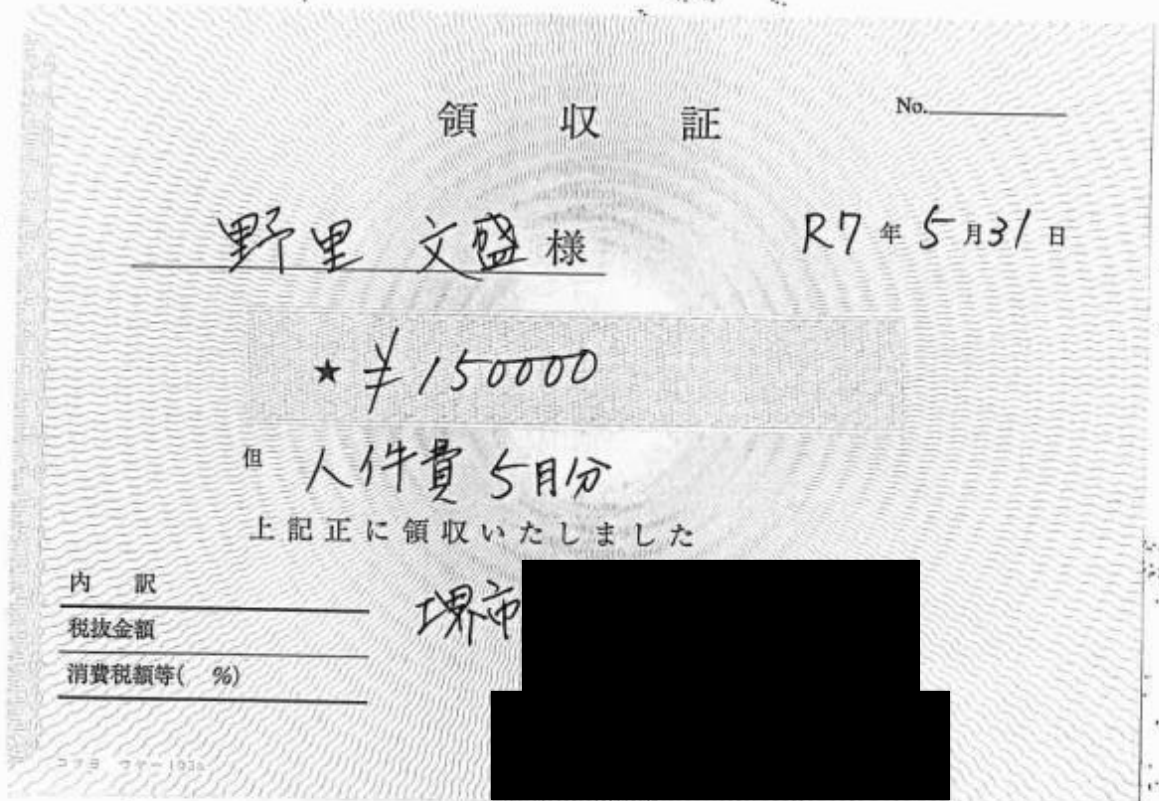 領 収 証
No.
野里 文盛 様
R7 年 5 月 31 日
★ ¥150000
但 人件費 5月分
上記正に領収いたしました
内 訳
税抜金額
消費税額等( %)
堺市
コクヨ ウケ-